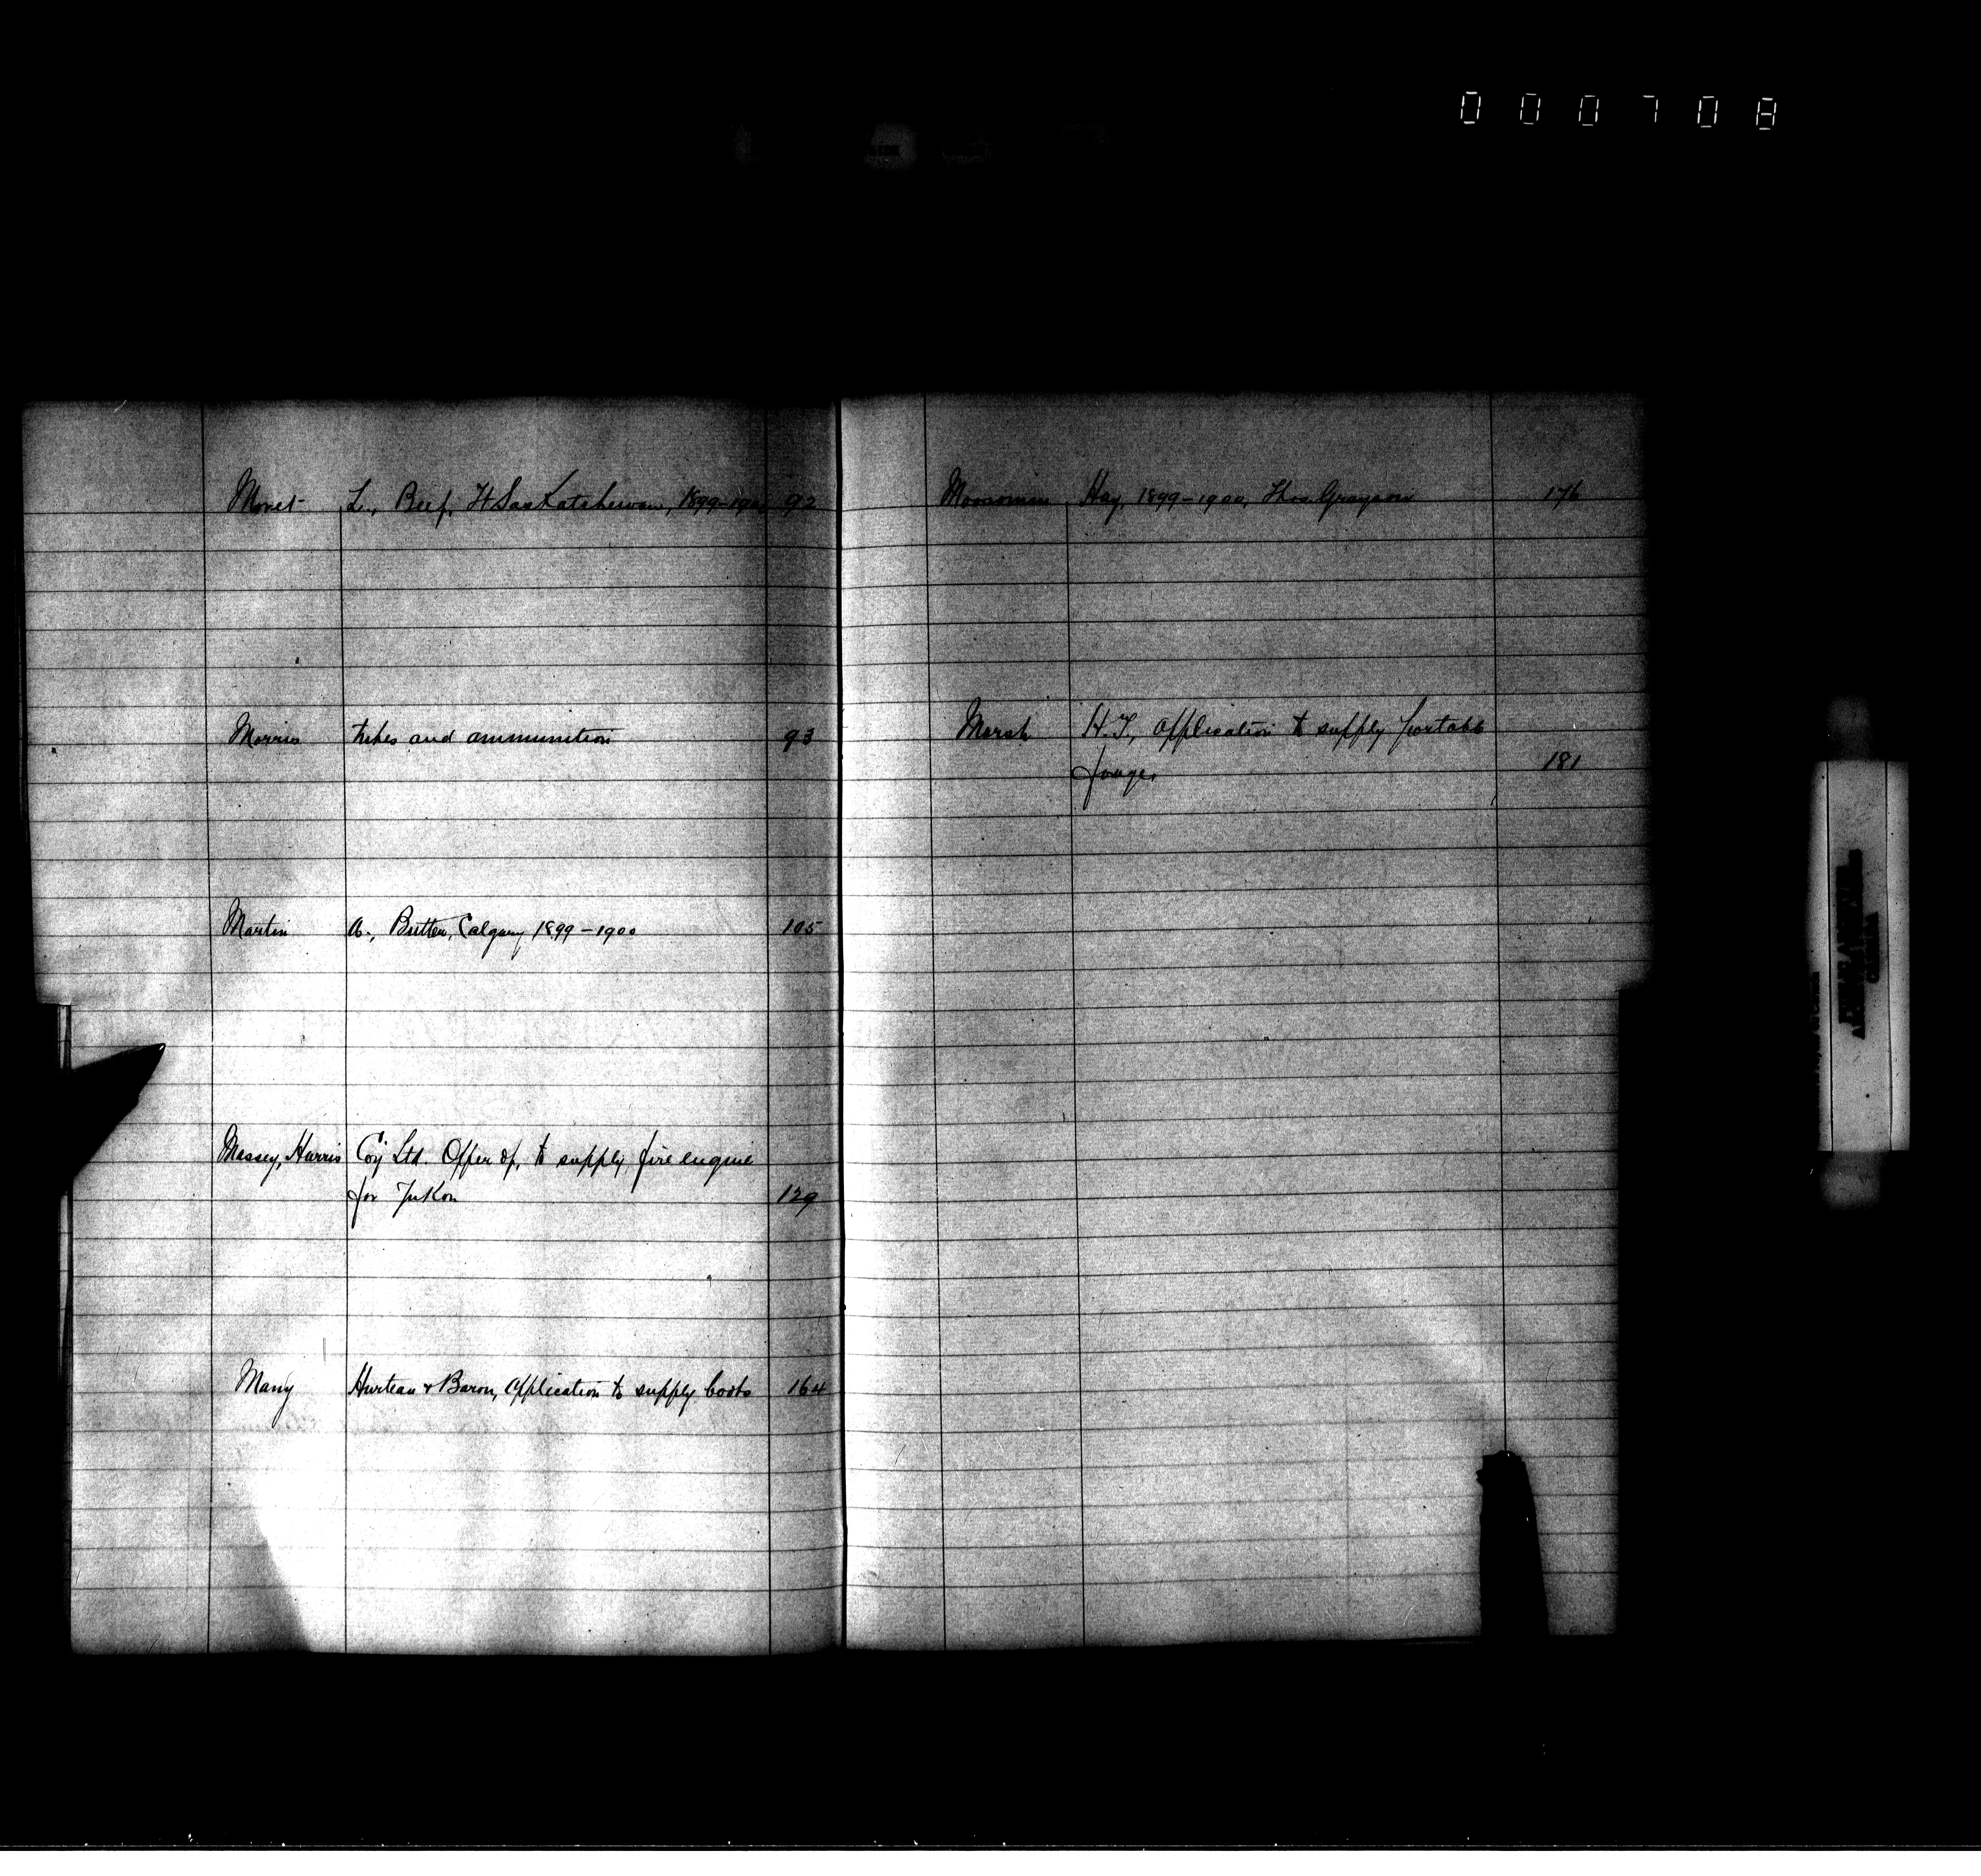 000708
Moret L., Beef, Ft Saskatchewan, 1899-1900, 92
Morris tubes and ammunition 93
Martin A., Butter, Calgary 1899-1900 105
Massey, Harris Coy Ltd. Offer of, to supply fire engine
for Yukon 129
Many Hurteau & Baron, application to supply boots 164
Moosomin Hay, 1899-1900, Thos. Grayson 176
Marsh H. T., application to supply portable
forges 181